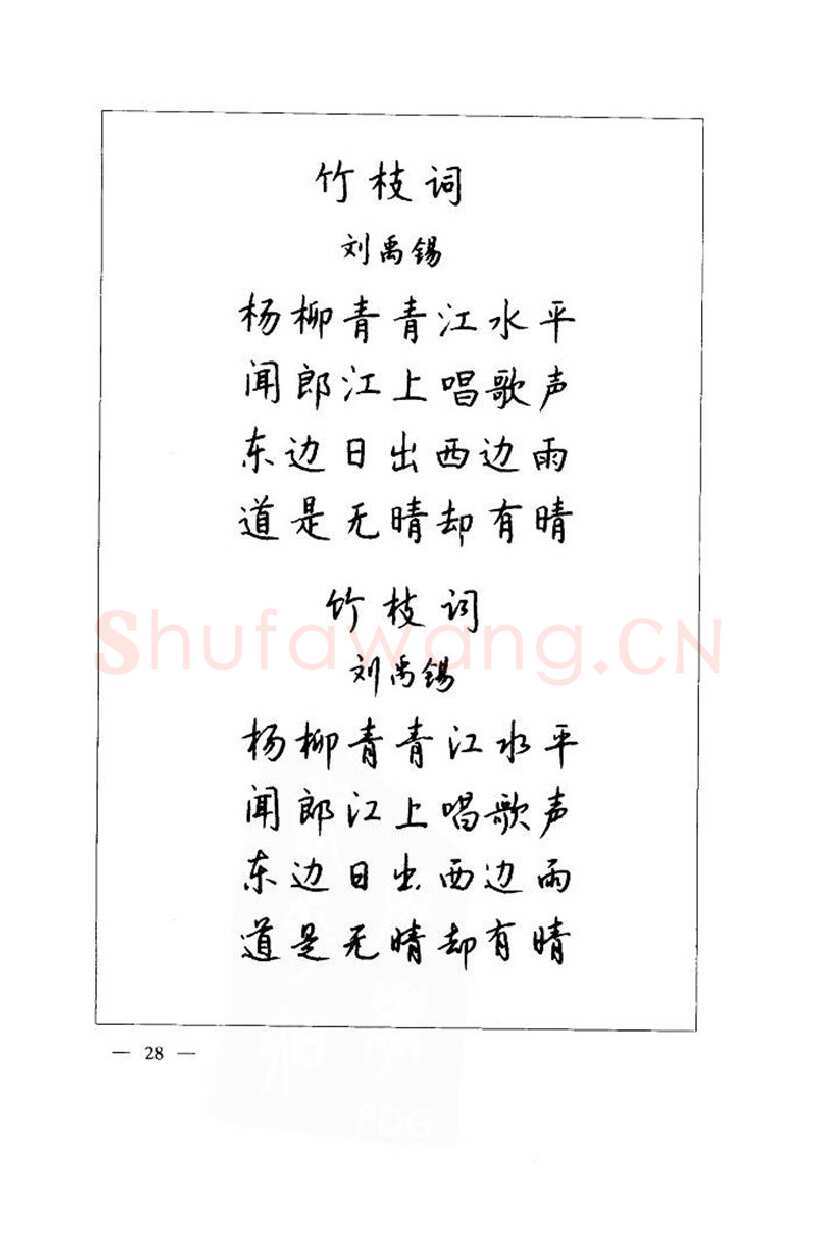 竹枝词
刘禹锡
杨柳青青江水平
闻郎江上唱歌声
东边日出西边雨
道是无晴却有晴
竹枝词
刘禹锡
Shufawang.CN
杨柳青青江水平
闻郎江上唱歌声
东边日出西边雨
道是无晴却有晴
— 28 —